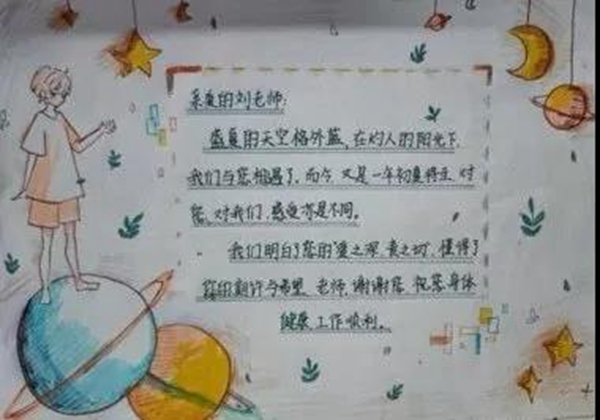 亲爱的刘老师:
盛夏的天空格外蓝,在灼人的阳光下,
我们与您相遇了,而今,又是一年初夏将至,对
您、对我们,感受亦是不同。
我们明白了您的“爱之深,责之切”,懂得了
您的期许与希望,老师,谢谢您,祝您身体
健康,工作顺利。